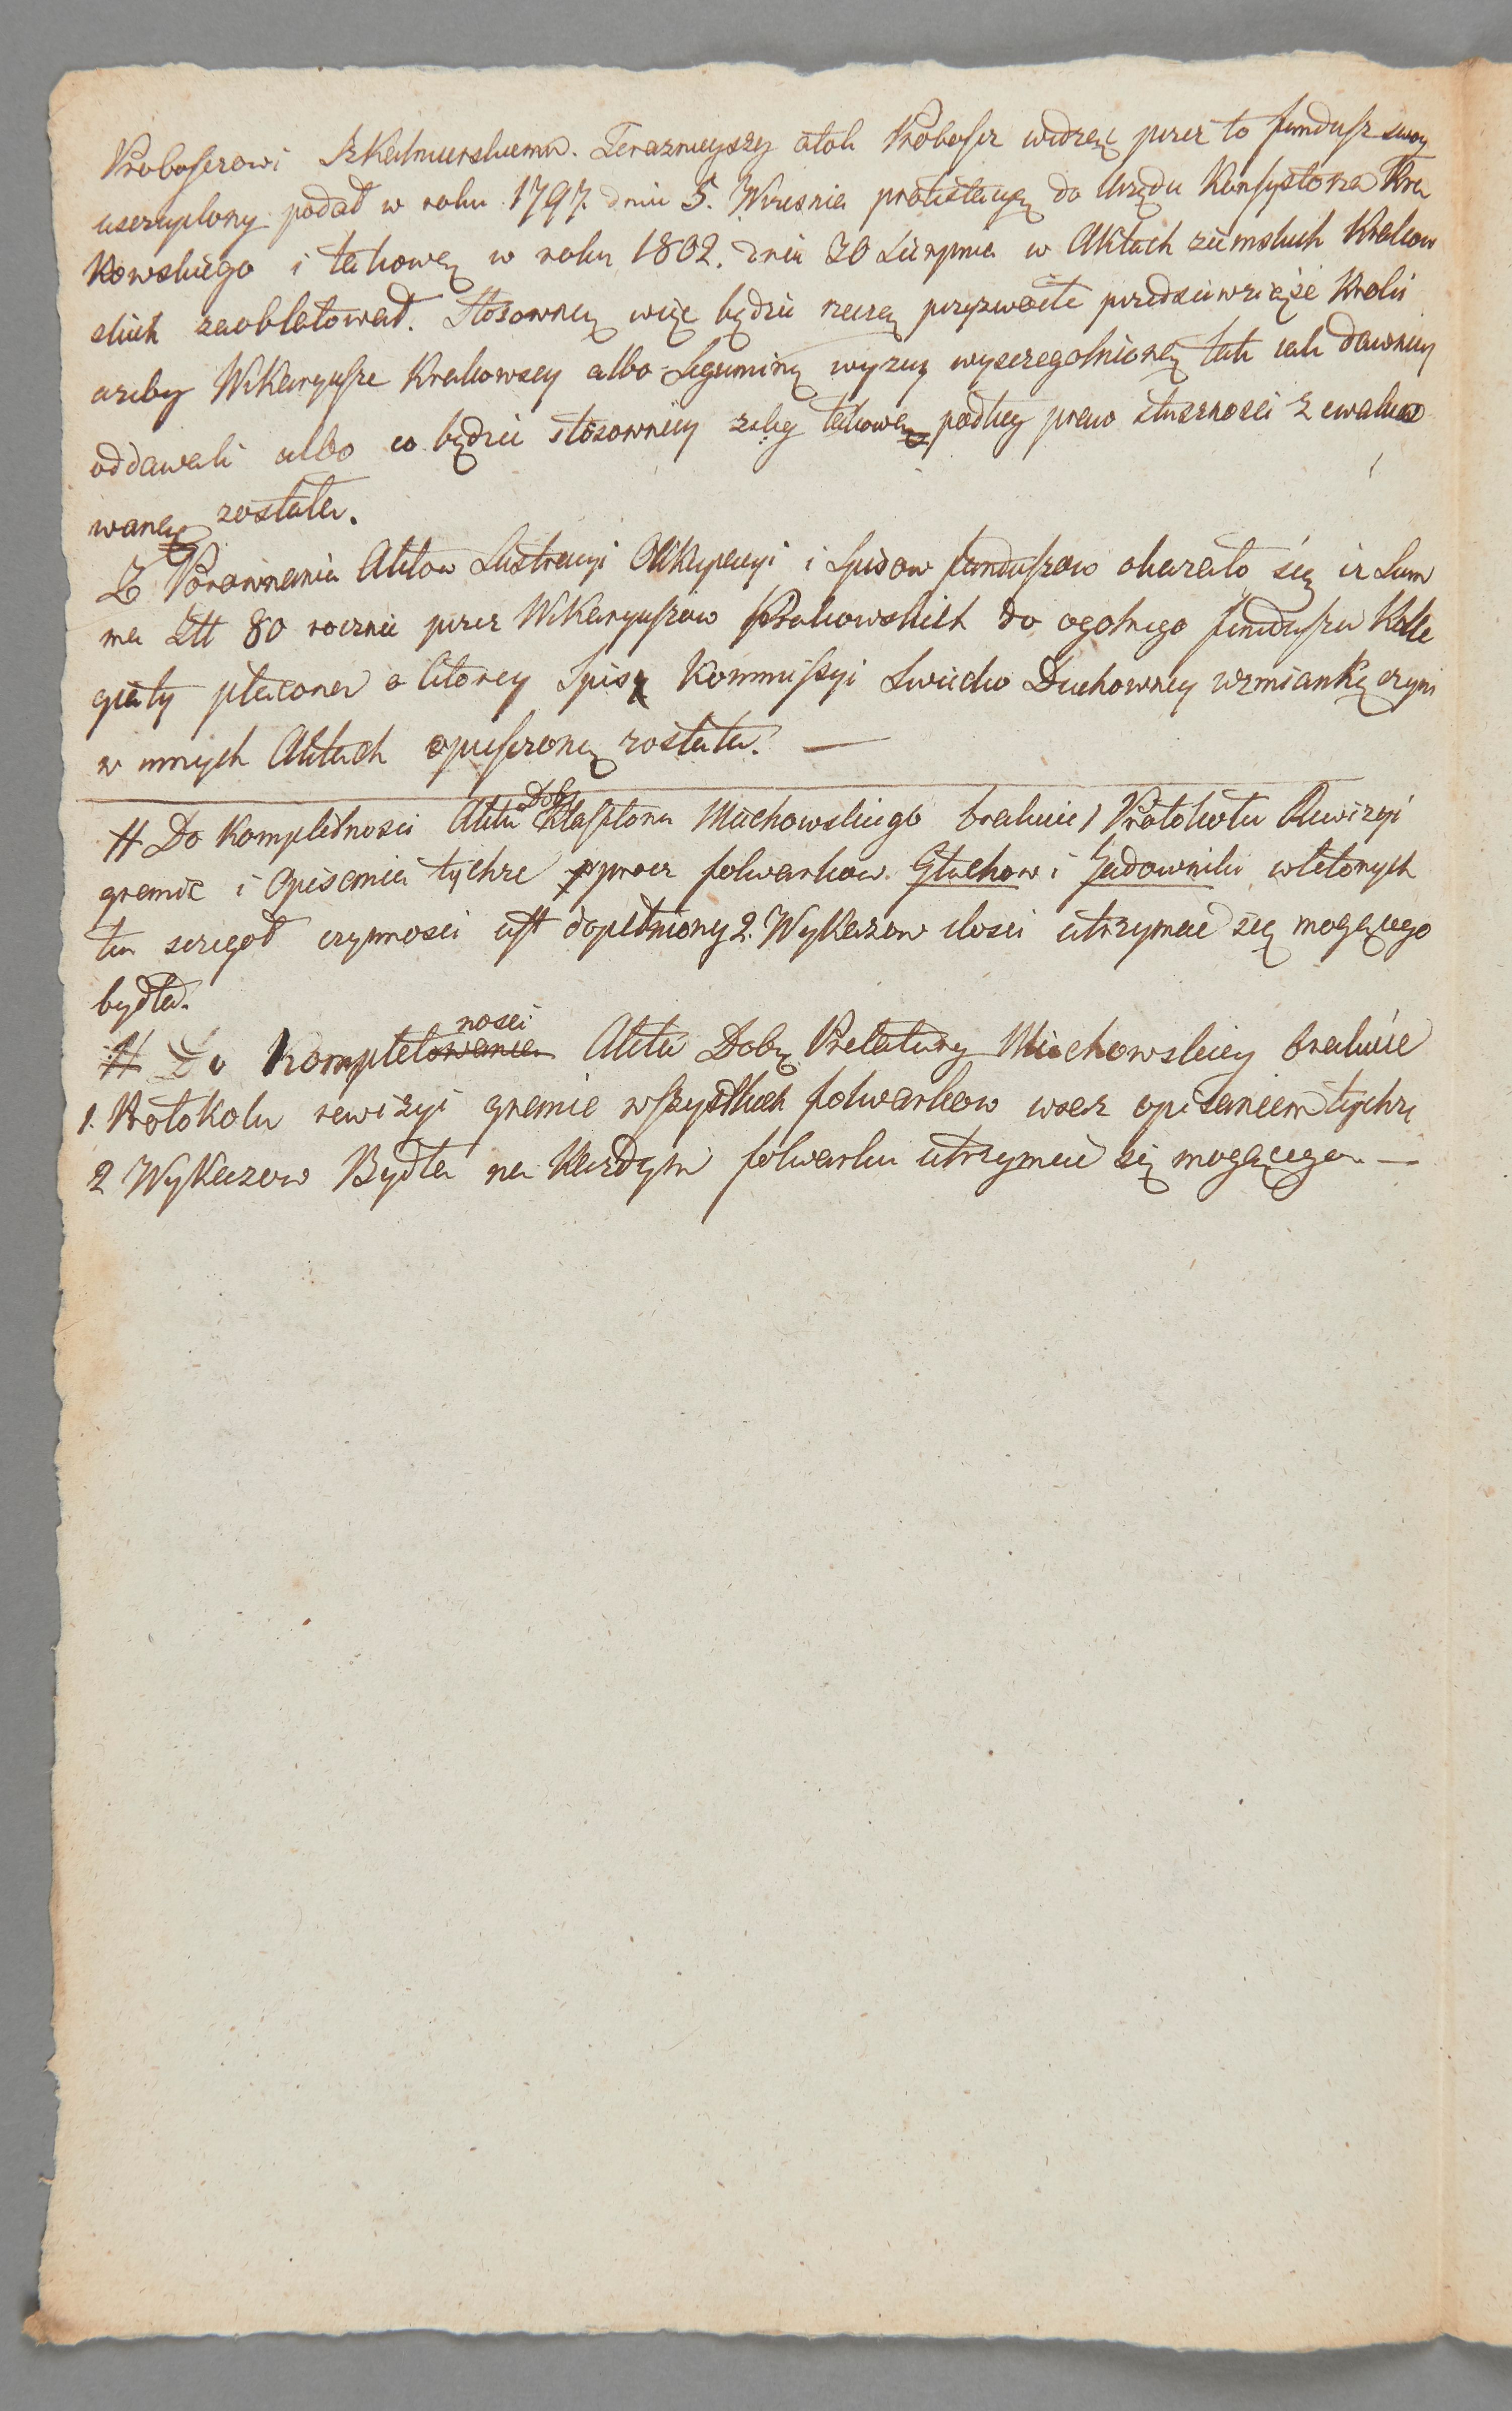 Proboszczowi Szkalmierskiemu. Teraznieyszy atoli Proboszcz widząc przez to fundusz swoy
uszczuplony podał w roku 1797. dniu 5. Wrzesnia protestacyą do Urzędu Konsystorza Kra
kowskiego i takową w roku 1802. dnia 20 Sierpnia w Aktach ziemskich Krakow
skich zaoblatował. Stosowną więc będzie rzeczą przyzwoite przedsiewziąść kroki
ażeby Wikaryusze Krakowscy albo Leguminę wyżey wyszczegolnioną tak iak dawniey
oddawali albo co będzie stosowniey żeby takowa podług prawa słuszności zewaluo
wana została.
Z Porównania Aktow Lustracyi Okkupacyi i Spisow funduszow okazało się iż Sum
ma Złt 80 rocznie przez Wikaryuszow Krakowskich do ogolnego funduszu Kolle
giaty płacona o ktorey Spis Kommissyi Swiecko Duchowney wzmiankę czyni
w innych Aktach opuszczoną została. —
# Do Kompletności Aktu Dobr Klasztoru Miechowskiego brakuie 1 Protokołu Rewizyi
granic i Opisania tychże oprocz folwarkow Głuchow i Sadowniki w ktorych
ten szczegoł czynności iest dopełniony 2. Wykazow ilości utrzymać się mogącego
bydła.
# Do Kompletowania ności Aktu Dobr Prelatury Miechowskiey brakuie
1. Protokolu rewizyi granic wszystkich folwarkow wraz opisaniem tychże
2 Wykazow Bydła na Każdym folwarku utrzymać się mogącego. —